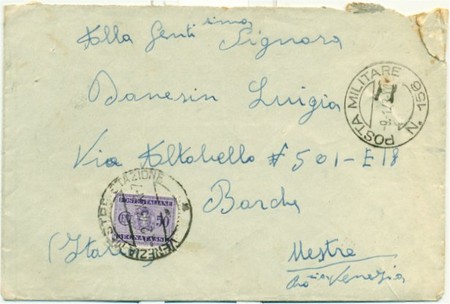 Alla Gentilma
Signora
Danesin Luigia
Via Altobello # 501-E18
Barche
(Ital
Mestre
Venezia
POSTA MILITARE N. 156
POSTE ITALIANE
50
SEGNATASSE
VENEZIA MESTRE STAZIONE